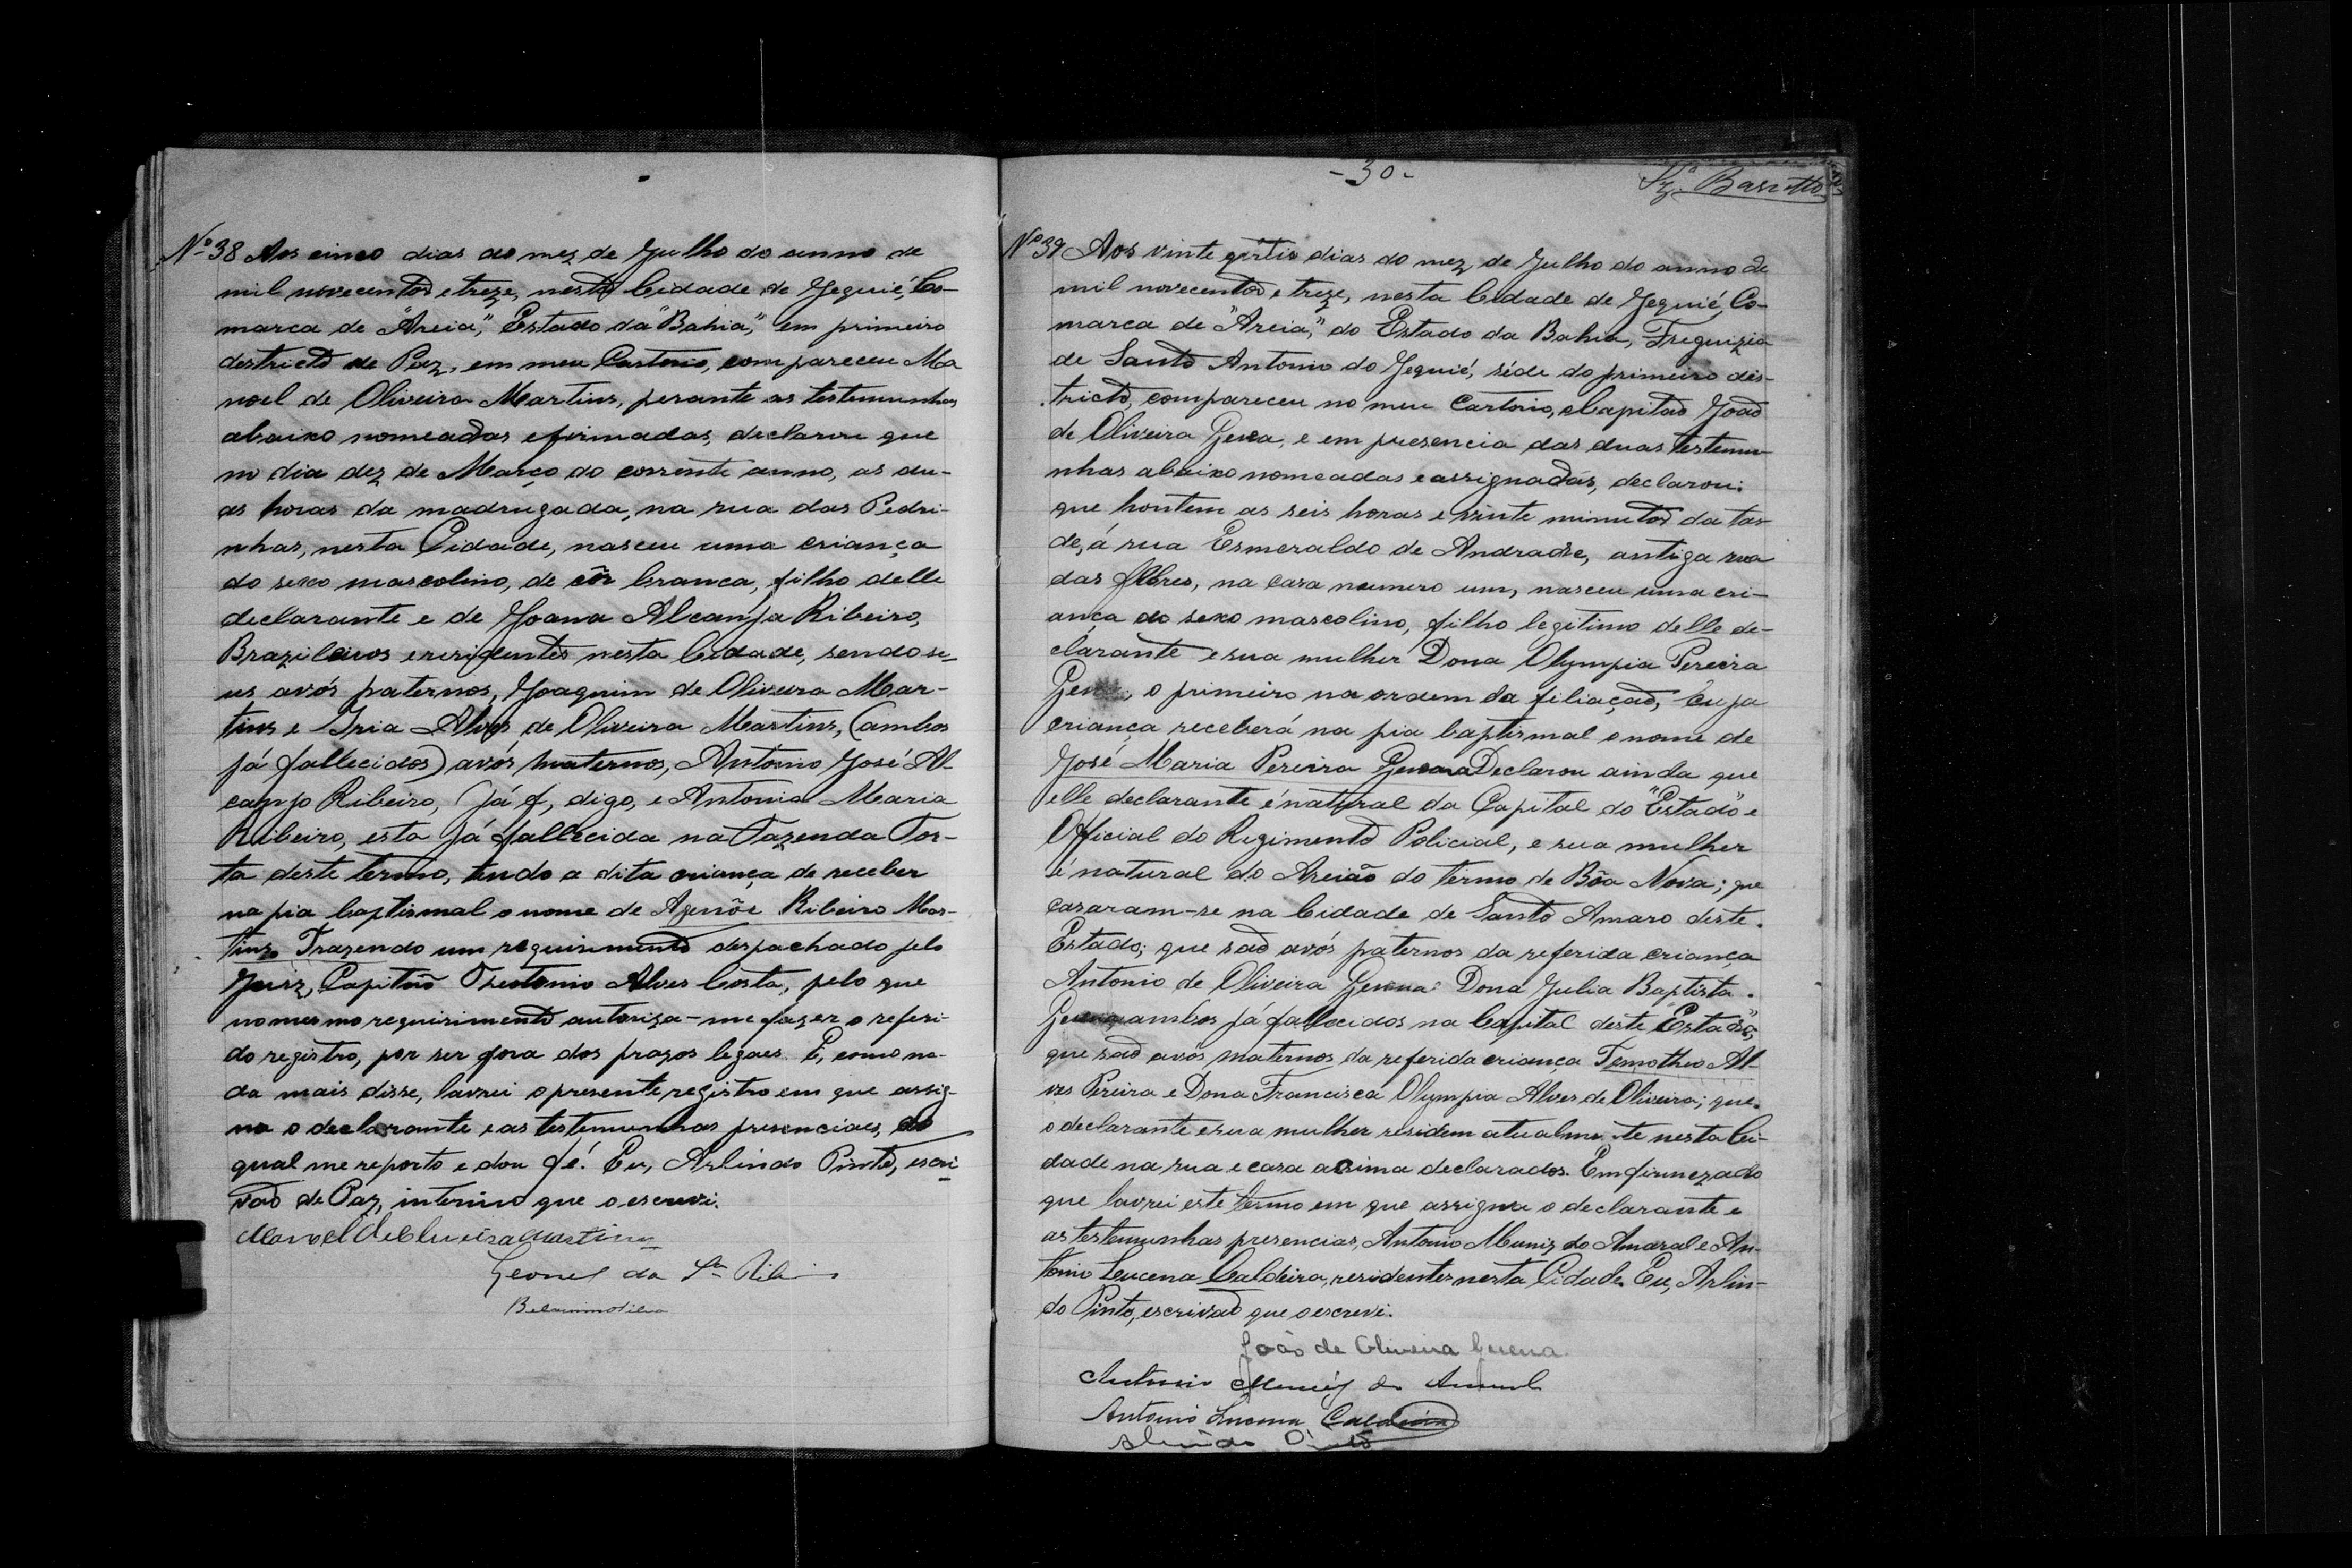 Nº 38 Aos cinco dias do mez de Julho do anno de
mil novecentos e treze, nesta Cidade de Jequié, Co-
marca de "Areia", Estado da "Bahia", em primeiro
destricto de Paz, em meu Cartorio, compareceu Ma
noel de Oliveira Martins, perante as testemunhas
abaixo nomeadas e firmadas, declarou que
no dia dez de Março do corrente anno, as du-
as horas da madrugada, na rua das Pedri-
nhas, nesta Cidade, nasceu uma criança
do sexo mascolino, de côr branca, filho delle
declarante e de Joana Alcanja Ribeiro,
Brazileiros e residentes nesta Cidade, sendo se-
us avós paternos, Joaquim de Oliveira Mar-
tins e Iria Alves de Oliveira Martins, (ambos
já fallecidos) avós maternos, Antonio José Al-
canjo Ribeiro, (já f, digo, e Antonia Maria
Ribeiro, esta já fallecida na Fazenda Tor-
ta deste termo, tendo a dita criança de receber
na pia baptismal o nome de Agenôr Ribeiro Mar-
tins. Trazendo um requirimento despachado pelo
Juiz, Capitão Theotonio Alves Costa, pelo que
no mesmo requirimento autoriza-me fazer o refiri-
do registro, por ser fora dos prazos legaes. E, como na-
da mais disse, lavrei o presente registro em que assig-
na o declarante e as testemunhas presenciaes, do
qual me reporto e dou fé. Eu, Arlindo Pinto, escri
vão de Paz, interino que o escrevi.
Manoel de Oliveira Martins
Leonel da Sª Ribeiro
- 30 -
Nº 39 Aos vinte e dias do mez de Julho do anno de
mil novecentos e treze, nesta Cidade de Jequié, Co-
marca de "Areia", do Estado da Bahia, Freguizia
de Santo Antonio do Jequié, séde do primeiro dis-
tricto, compareceu no meu Cartorio, o Capitão João
de Oliveira Guena, e em presencia das duas testemu-
nhas abaixo nomeadas e assignadas, declarou:
que hontem as seis horas e vinte minutos da tar-
de, á rua Esmeraldo de Andrade, antiga rua
das Flores, na casa numero um, nasceu uma cri-
ança do sexo mascolino, filho legitimo delle de-
clarante e sua mulher Dona Olympia Pereira
Guena, o primeiro na ordem da filiação, cuja
criança receberá na pia baptismal o nome de
José Maria Pereira Guena Declarou ainda que
elle declarante é natural da Capital do "Estado" e
Official do Regimento Policial, e sua mulher
é natural do Areião do termo de Bôa Nova; que
casaram-se na Cidade de Santo Amaro deste
Estado; que são avós paternos da referida criança
Antonio de Oliveira Guena Dona Julia Baptista
Guena ambos já fallecidos na Capital deste Estado,
que são avós maternos da referida criança Temotheo Al-
ves Pereira e Dona Francisca Olympia Alves de Oliveira; que
o declarante e sua mulher residem atualmente nesta Ci-
dade na rua e casa acima declarados. Em firmeza do
que lavrei este termo em que assigna o declarante e
as testemunhas presencias, Antonio Muniz do Amaral e An-
tonio Lucena Caldeira, residentes nesta Cidade. Eu, Arlin-
do Pinto, escrivão que o escrevi.
João de Oliveira Guena
Antonio Muniz do Amaral
Antonio Lucena Caldeira
Arlindo Pinto